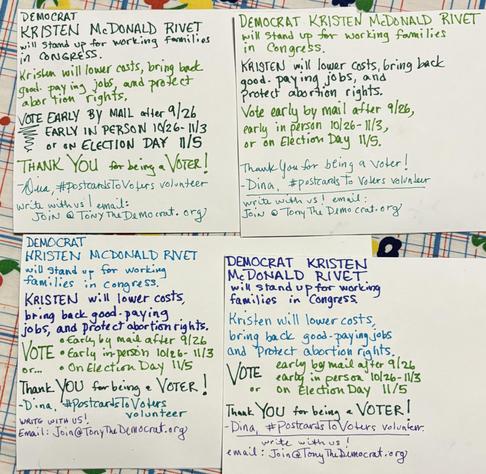 DEMOCRAT
KRISTEN McDONALD RIVET
will stand up for working families
in CONGRESS.
Kristen will lower costs, bring back
good-paying jobs, and protect
abortion rights.
VOTE EARLY BY MAIL after 9/26
EARLY IN PERSON 10/26-11/3
or on ELECTION DAY 11/5
THANK YOU for being a VOTER!
Dina, #postcardsToVoters volunteer
write with us! email:
Join@TonyTheDemocrat.org
DEMOCRAT KRISTEN McDONALD RIVET
will stand up for working families
in Congress.
KRISTEN will lower costs, bring back
good-paying jobs, and
Protect abortion rights.
Vote early by mail after 9/26,
early in person 10/26-11/3,
or on Election Day 11/5.
Thank You for being a Voter!
-Dina, #postcards To Voters volunteer
write with us! email:
Join@TonyTheDemocrat.org
DEMOCRAT
KRISTEN MCDONALD RIVET
will stand up for working
families in congress.
KRISTEN will lower costs,
bring back good-paying
jobs, and Protect abortion rights.
VOTE • Early by mail after 9/26
• Early in-person 10/26-11/3
or... • On Election Day 11/5
Thank YOU for being a VOTER!
-Dina, #PostcardsToVoters
volunteer
WRITE WITH US!
Email: Join@TonyTheDemocrat.org
DEMOCRAT KRISTEN
McDONALD RIVET
will stand up for working
families in Congress.
Kristen will lower costs,
bring back good-paying jobs
and Protect abortion rights.
VOTE early by mail after 9/26
early in person 10/26-11/3
or on Election Day 11/5
Thank YOU for being a VOTER!
-Dina, #PostcardsToVoters volunteer.
write with us!
email: Join@TonyTheDemocrat.org